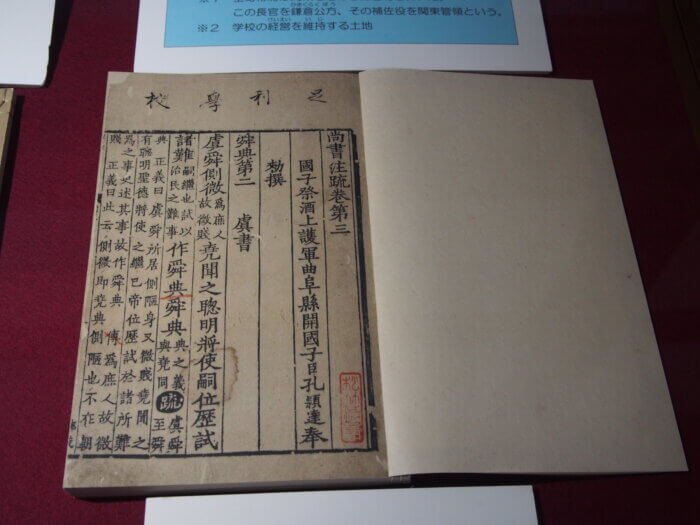 この長官を鎌倉公方、その補佐役を関東管領という。
※2 学校の経営を維持する土地
足利學校
尚書注疏卷第三
國子祭酒上護軍曲阜縣開國子臣孔穎達奉
勑撰
舜典第二 虞書
虞舜側微為庶人故微賤堯聞之聰明將使嗣位歷試
諸難嗣繼也試以治民之難事作舜典舜典典之義與堯同疏虞舜至舜
典 正義曰虞舜所居側陋身又微賤堯聞之
有聰明聖德將使之繼己帝位歷試於諸所難
為之事史述其事故作舜典 傳為庶人故微
賤 正義曰此云側微即堯典側陋也不在朝